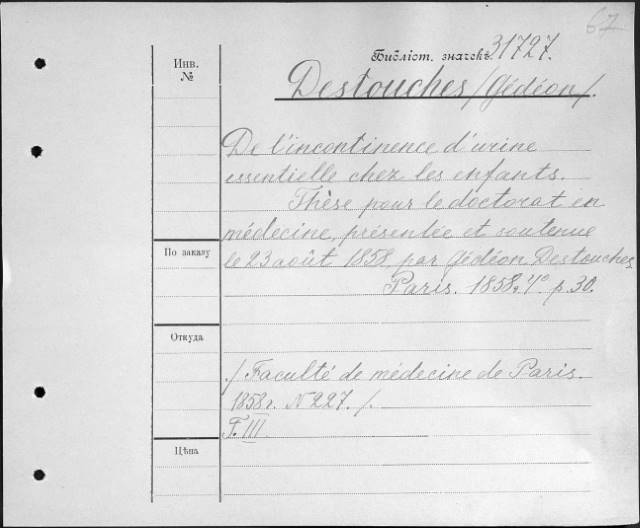 67
Библіот. значекъ 31727.
Инв.
№
Destouches /Gédéon/.
De l'incontinence d'urine
essentielle chez les enfants.
Thèse pour le doctorat en
médecine, présentée et soutenue
По заказу
le 23 août 1858 par Gédéon Destouches
Paris. 1858. 4° p. 30.
Откуда
/ Faculté de médecine de Paris.
1858 г. N 227. /.
T. III
Цѣна